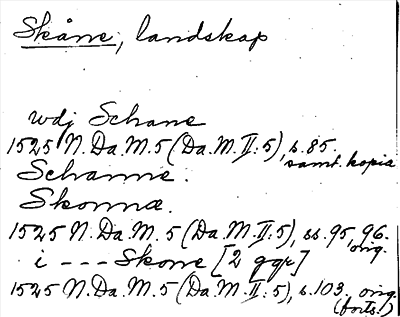 Skåne, landskap
wdj Schane
1525 N.Da.M.5 (Da.M.II:5), s.85.
samt. kopia
Schanne.
Skonnæ.
1525 N.Da.M. 5 (Da.M.II.5), ss.95, 96.
orig.
i --- Skone [2 ggr]
1525 N.Da.M.5 (Da.M.II:5), s.103, orig.
(forts.)